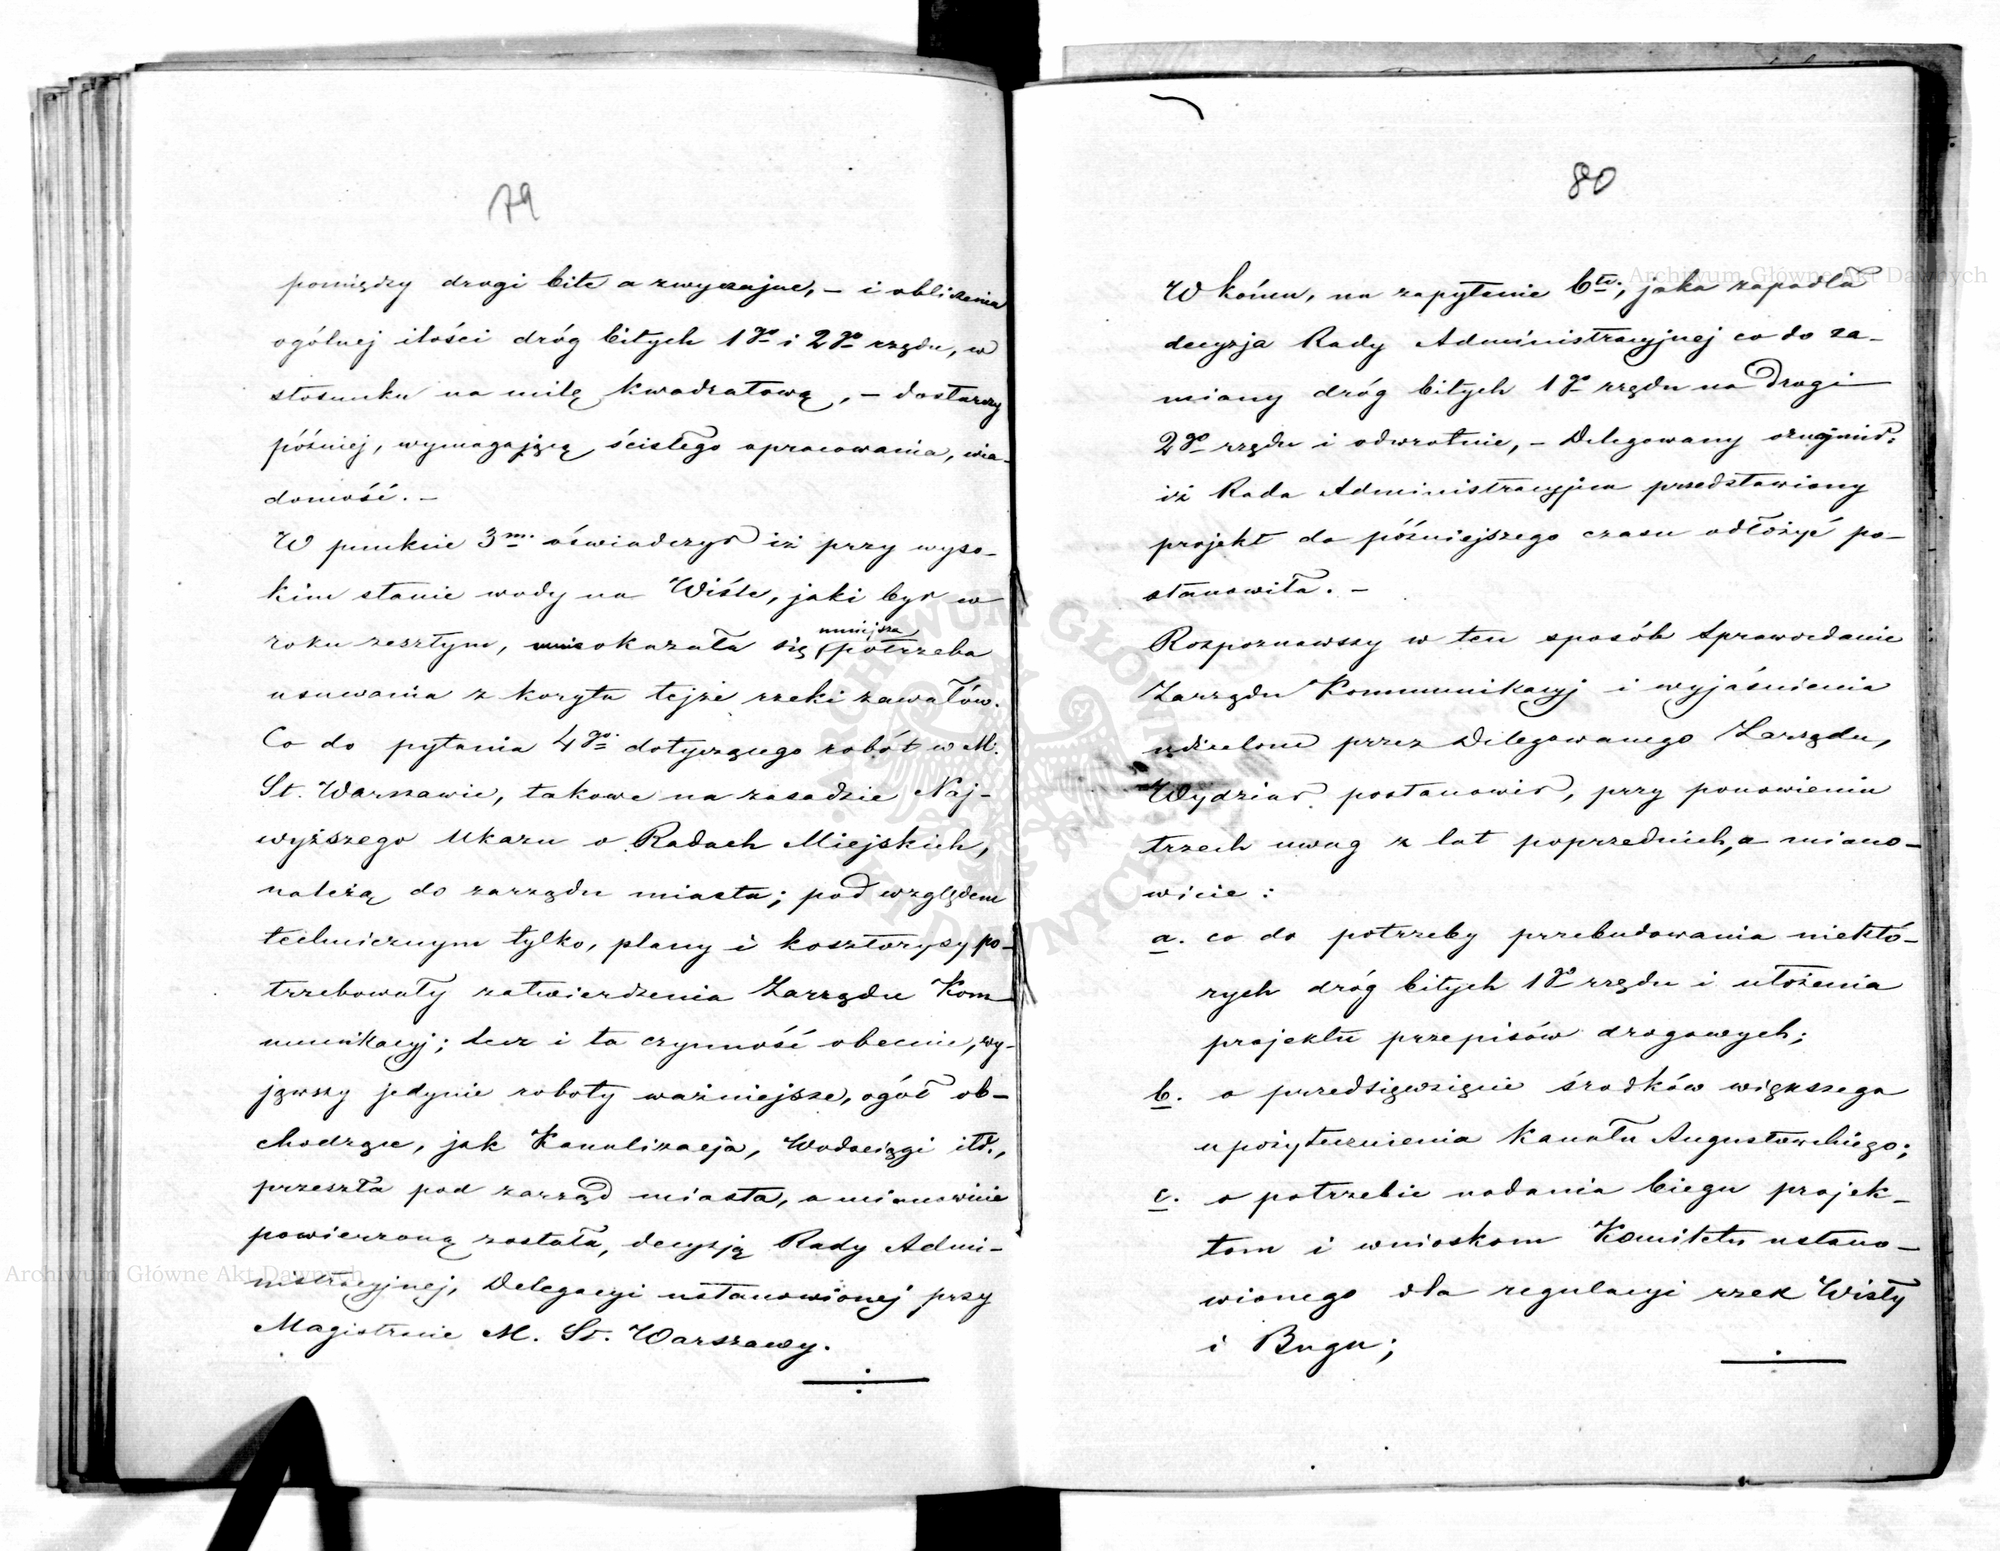 79
pomiędzy drogi bite a zwyczajne, – i obliczenia
ogólnej ilości dróg bitych 1go i 2go rzędu, w
stosunku na milę kwadratową, – dostarczy
później, wymagającą ścisłego opracowania, wia-
domość. –
W punkcie 3m. oświadczył iż przy wyso-
kim stanie wody na Wiśle, jaki był w
roku zeszłym, okazała się mniejsza potrzeba
usuwania z koryta tejże rzeki zawałów.
Co do pytania 4go. dotyczącego robót w M.
St. Warszawie, takowe na zasadzie Naj-
wyższego Ukazu o Radach Miejskich,
należą do zarządu miasta; pod względem
technicznym tylko, plany i kosztorysy po-
trzebowały zatwierdzenia Zarządu Kom-
munikacyj; lecz i ta czynność obecnie, wy-
jąwszy jedynie roboty ważniejsze, ogół ob-
chodzące, jak Kanalizacja, Wodociągi itd.,
przeszła pod zarząd miasta, a mianowicie
powierzoną została, decyzją Rady Admi-
nistracyjnej, Delegacyi ustanowionej przy
Magistracie M. St. Warszawy.
80
W końcu, na zapytanie 6te., jaka zapadła
decyzja Rady Administracyjnej co do za-
miany dróg bitych 1go rzędu na drogi
2go rzędu i odwrotnie, – Delegowany oznajmił:
iż Rada Administracyjna przedstawiony
projekt do późniejszego czasu odłożyć po-
stanowiła. –
Rozpoznawszy w ten sposób Sprawozdanie
Zarządu Kommunikacyj i wyjaśnienia
udzielone przez Delegowanego Zarządu,
Wydział postanowił, przy ponowieniu
trzech uwag z lat poprzednich, a miano-
wicie:
a. co do potrzeby przebudowania niektó-
rych dróg bitych 1go rzędu i ułożenia
projektu przepisów drogowych;
b. o przedsięwzięcie środków większego
upożytecznienia Kanału Augustowskiego;
c. o potrzebie nadania biegu projek-
tom i wnioskom Komitetu ustano-
wionego dla regulacyi rzek Wisły
i Bugu;
Archiwum Główne Akt Dawnych
Archiwum Główne Akt Dawnych
ARCHIWUM GŁÓWNE AKT DAWNYCH